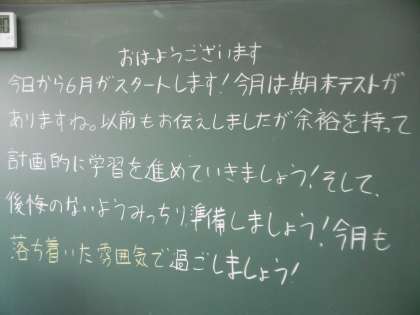 おはようございます
今日から6月がスタートします!今月は期末テストが
ありますね。以前もお伝えしましたが余裕を持って
計画的に学習を進めていきましょう!そして、
後悔のないようみっちり準備しましょう!今月も
落ち着いた雰囲気で過ごしましょう!